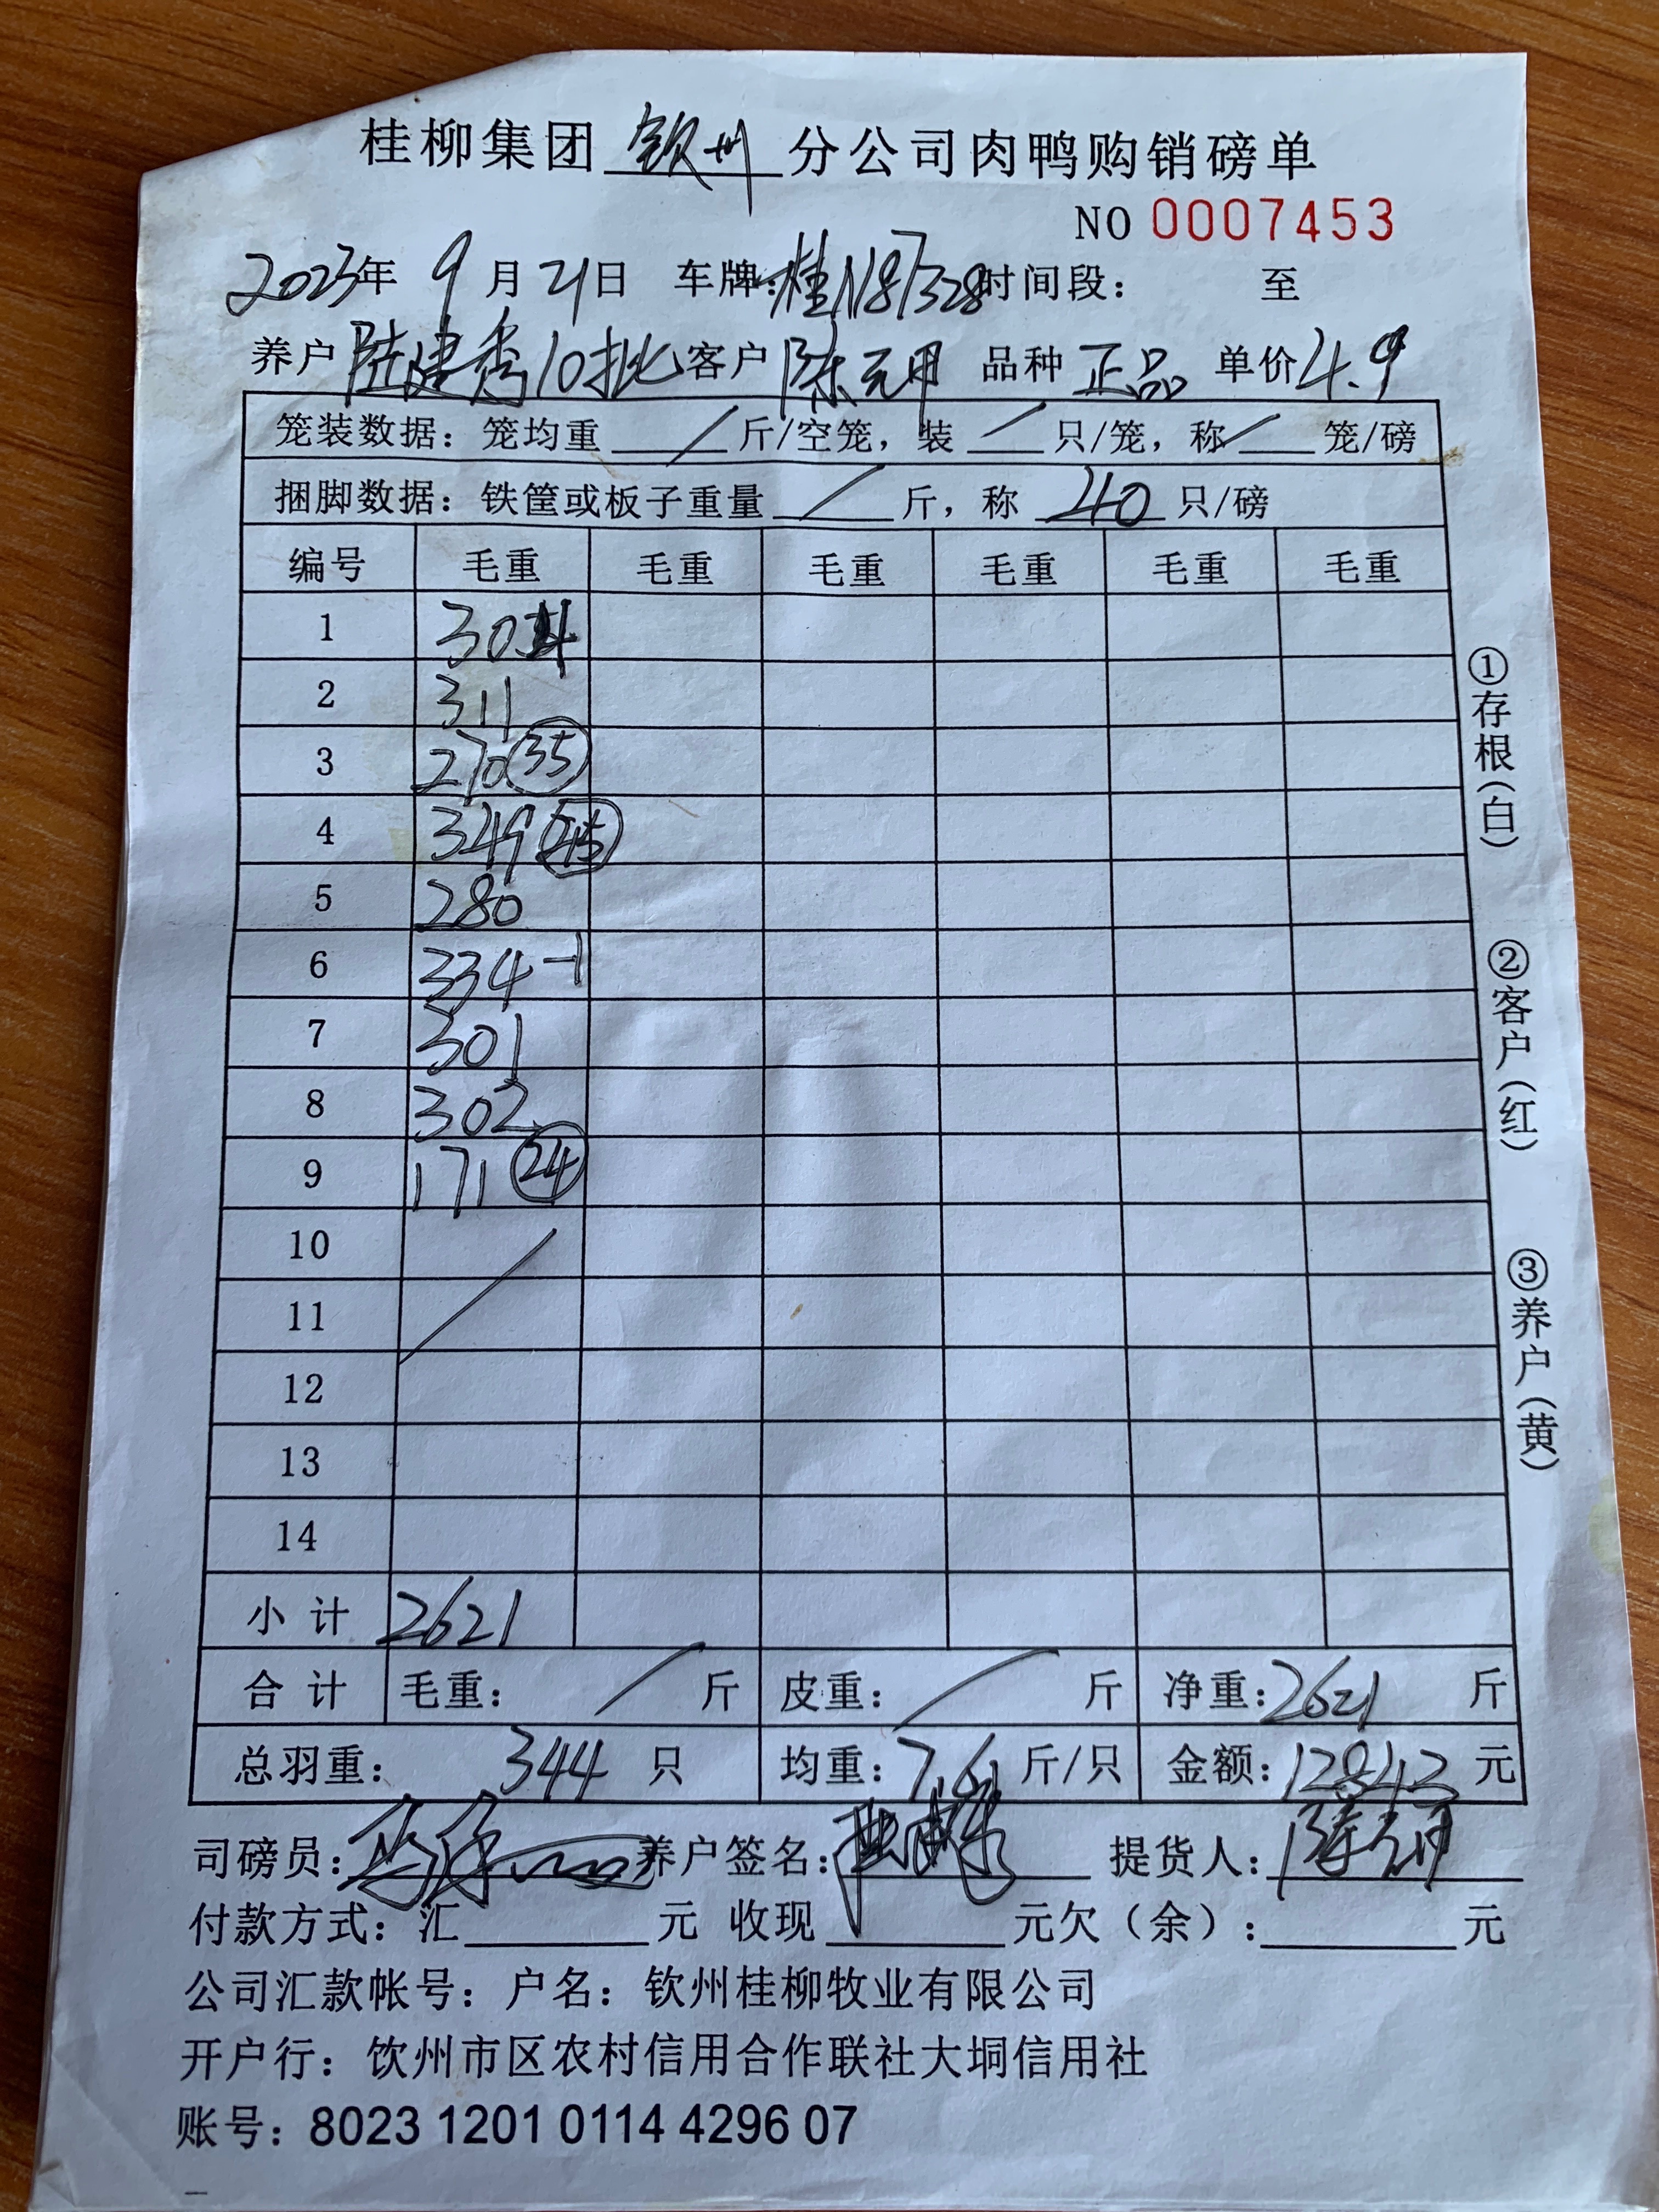 桂柳集团 钦州 分公司肉鸭购销磅单
NO 0007453
2023年 9月21日 车牌:桂N87328 时间段: 至
养户 陆建秀10批 客户 陈元月 品种 正品 单价4.9
笼装数据: 笼均重 / 斤/空笼, 装 / 只/笼, 称 / 笼/磅
捆脚数据: 铁筐或板子重量 / 斤, 称 40 只/磅
编号 毛重 毛重 毛重 毛重 毛重 毛重
1 304
2 311
3 270 35
4 349 45
5 280
6 334 -1
7 301
8 302
9 171 24
10
11
12
13
14
小计 2621
合计 毛重: / 斤 皮重: / 斤 净重:2621 斤
总羽重: 344 只 均重:7.61 斤/只 金额:12842 元
司磅员: 养户签名: 提货人:
付款方式: 汇 元 收现 元欠(余): 元
公司汇款帐号: 户名: 钦州桂柳牧业有限公司
开户行: 钦州市区农村信用合作联社大垌信用社
账号: 8023 1201 0114 4296 07
①存根(白)
②客户(红)
③养户(黄)